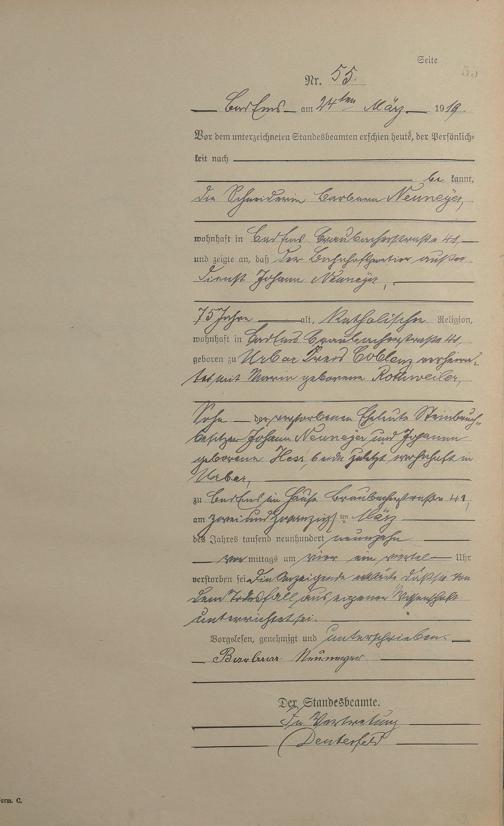 Seite
55
Nr. 55.
Bad Ems am 24ten März 1919.
Vor dem unterzeichneten Standesbeamten erschien heute, der Persönlich-
keit nach
be kannt,
die Schneiderin Barbara Neuneyer,
wohnhaft in Bad Ems Braubacherstraße 41
und zeigte an, daß der Bahnhofsportier außer
Dienst Johann Neuneyer,
75 Jahre alt, Katholischer Religion,
wohnhaft in Bad Ems Braubacherstraße 41,
geboren zu Urbar Kreis Coblenz verheira-
tet mit Maria geborene Rothweiler,
Sohn der verstorbenen Eheleute Steinbruch-
besitzer Johann Neuneyer und Johanna
geborene Hess, beide zuletzt wohnhaft in
Urbar,
zu Bad Ems im Hause Braubacherstraße 41,
am zweiundzwanzigsten März
des Jahres tausend neunhundert neunzehn
vor mittags um vier ein viertel Uhr
verstorben sei. Die Anzeigende erklärte, daß sie von
dem Todesfall aus eigener Wissenschaft
unterrichtet sei.
Vorgelesen, genehmigt und unterschrieben.
Barbara Neuneyer
Der Standesbeamte.
In Vertretung
Form. C.